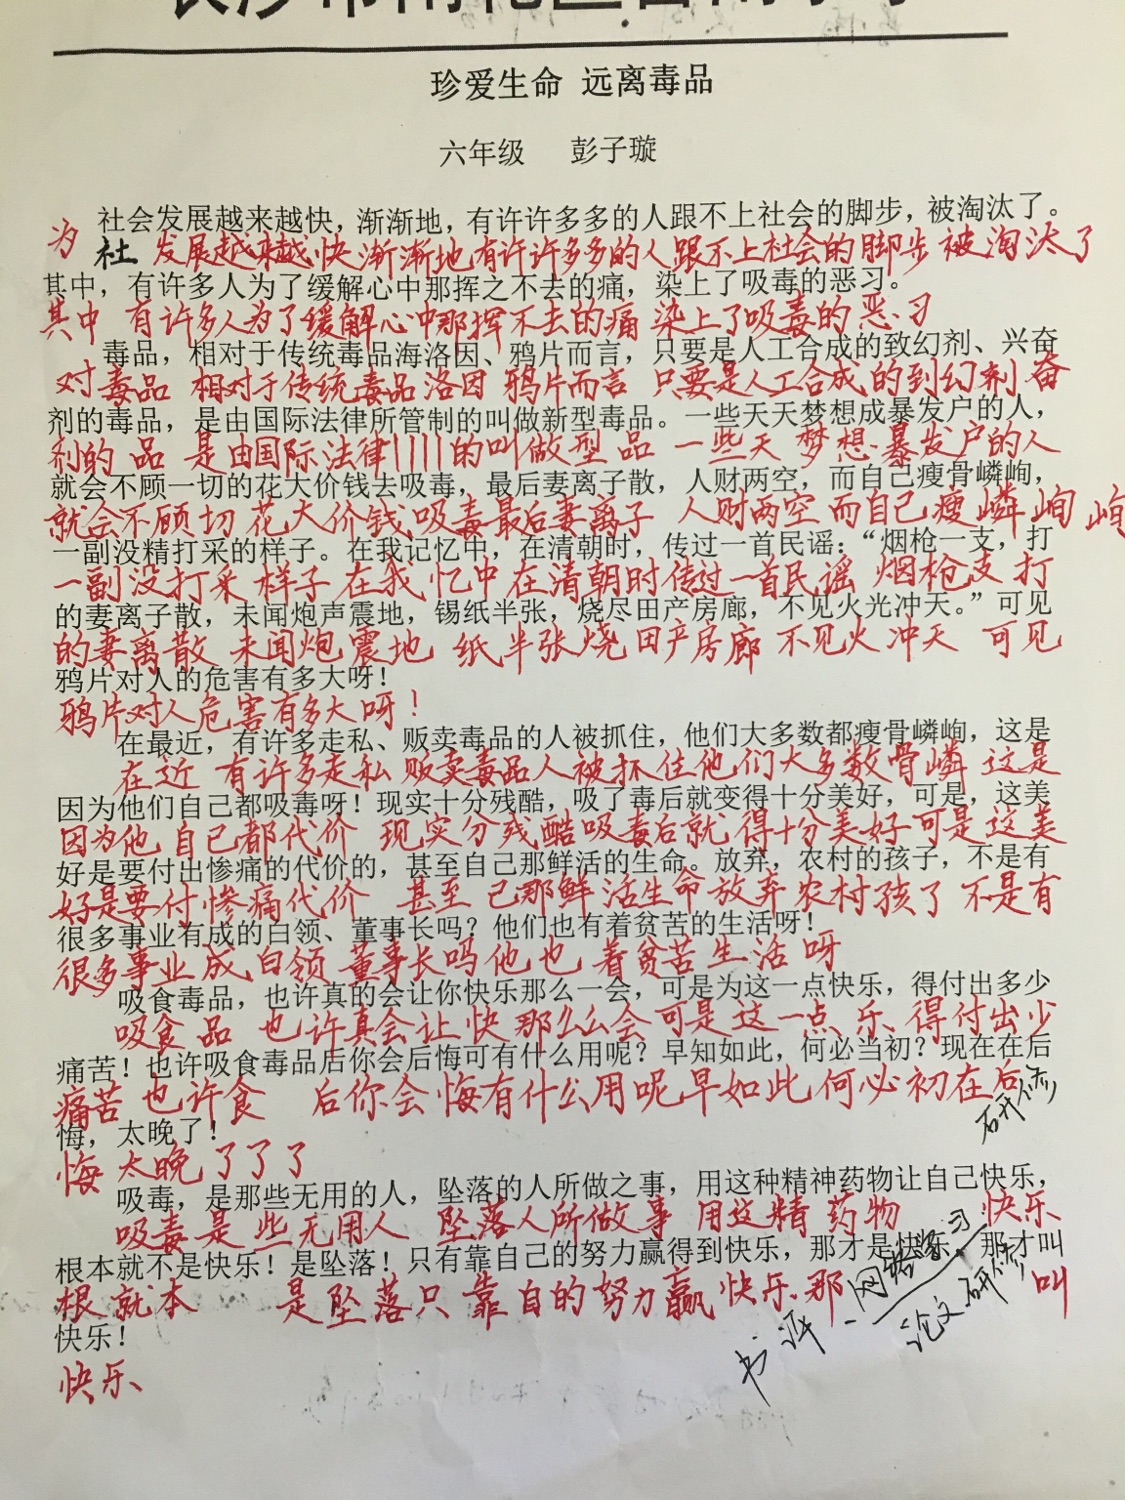 珍爱生命 远离毒品
六年级 彭子璇
社会发展越来越快，渐渐地，有许许多多的人跟不上社会的脚步，被淘汰了。
为 社 发展越来越快渐渐地有许许多多的人跟不上社会的脚步 被淘汰了
其中，有许多人为了缓解心中那挥之不去的痛，染上了吸毒的恶习。
其中 有许多人为了缓解心中那挥不去的痛 染上了吸毒的恶习
毒品，相对于传统毒品海洛因、鸦片而言，只要是人工合成的致幻剂、兴奋
对毒品 相对于传统毒品洛因 鸦片而言 只要是人工合成的到幻剂奋
剂的毒品，是由国际法律所管制的叫做新型毒品。一些天天梦想成暴发户的人，
剂的 品 是由国际法律 的叫做型品 一些天 梦想暴发户的人
就会不顾一切的花大价钱去吸毒，最后妻离子散，人财两空，而自己瘦骨嶙峋，
就会不顾切 花大价钱吸毒最后妻离子 人财两空而自己瘦嶙峋 峋
一副没精打采的样子。在我记忆中，在清朝时，传过一首民谣：“烟枪一支，打
一副没打采 样子 在我 忆中在清朝时传过一首民谣 烟枪支 打
的妻离子散，未闻炮声震地，锡纸半张，烧尽田产房廊，不见火光冲天。”可见
的妻离散 未闻炮震地 纸半张烧田产房廊 不见火冲天 可见
鸦片对人的危害有多大呀！
鸦片对人危害有多大呀！
在最近，有许多走私、贩卖毒品的人被抓住，他们大多数都瘦骨嶙峋，这是
在近 有许多走私 贩卖毒品人被抓住他们大多数骨嶙 这是
因为他们自己都吸毒呀！现实十分残酷，吸了毒后就变得十分美好，可是，这美
因为他 自己都代价 现实分残酷吸毒后就得十分美好可是这美
好是要付出惨痛的代价的，甚至自己那鲜活的生命。放弃，农村的孩子，不是有
好是要付惨痛代价 甚至 己那鲜活生命放弃农村孩了 不是有
很多事业有成的白领、董事长吗？他们也有着贫苦的生活呀！
很多事业成白领 董事长吗他也 着贫苦生活呀
吸食毒品，也许真的会让你快乐那么一会，可是为这一点快乐，得付出多少
吸食品 也许真会让快那么么会可是这一点乐得付出少
痛苦！也许吸食毒品后你会后悔可有什么用呢？早知如此，何必当初？现在在后
痛苦也许食 后你会悔有什么用呢早如此何必初在后
研修
悔，太晚了！
悔 太晚了了了
吸毒，是那些无用的人，坠落的人所做之事，用这种精神药物让自己快乐，
吸毒是些无用人 坠落人所做事 用这精药物 快乐
根本就不是快乐！是坠落！只有靠自己的努力赢得到快乐，那才是快乐，那才叫
根就本 是坠落只靠自的努力赢快乐那 叫
书评 - 网络学习
论文研修
快乐！
快乐